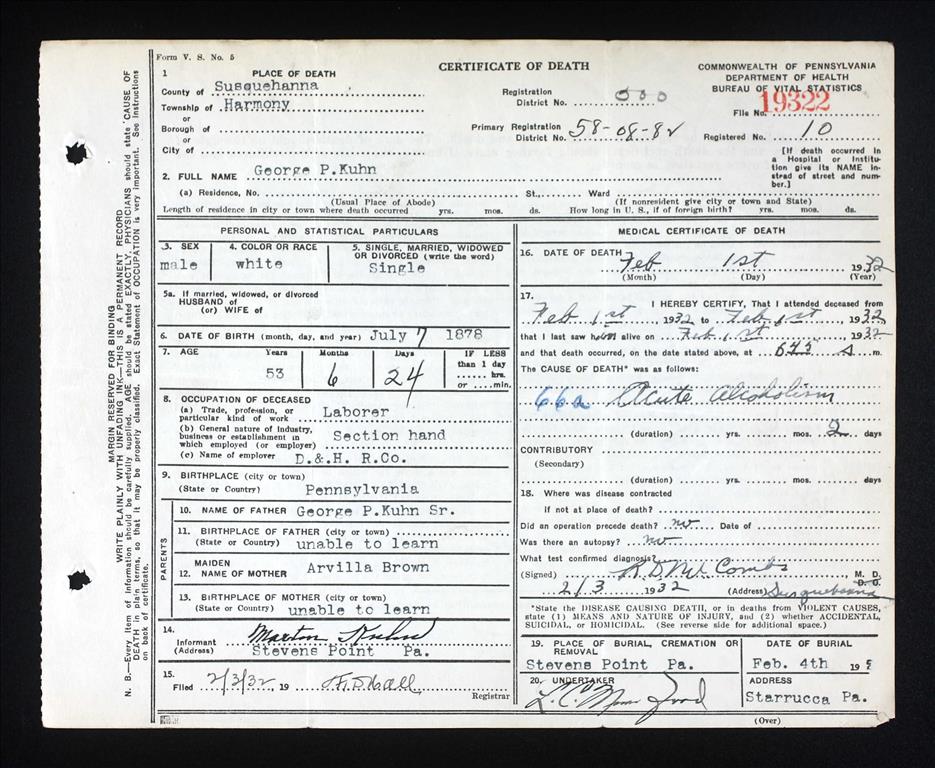 Form V. S. No. 5
CERTIFICATE OF DEATH
COMMONWEALTH OF PENNSYLVANIA
DEPARTMENT OF HEALTH
BUREAU OF VITAL STATISTICS
1 PLACE OF DEATH
County of Susquehanna
Township of Harmony
or
Borough of
or
City of
Registration
District No. 000
Primary Registration
District No. 58-08-82
File No. 19322
Registered No. 10
[If death occurred in
a Hospital or Institu-
tion give its NAME in-
stead of street and num-
ber.]
2. FULL NAME George P.Kuhn
(a) Residence, No. St., Ward
(Usual Place of Abode) (If nonresident give city or town and State)
Length of residence in city or town where death occurred yrs. mos. ds. How long in U. S., if of foreign birth? yrs. mos. ds.
PERSONAL AND STATISTICAL PARTICULARS
3. SEX
male
4. COLOR OR RACE
white
5. SINGLE, MARRIED, WIDOWED
OR DIVORCED (write the word)
Single
5a. If married, widowed, or divorced
HUSBAND of
(or) WIFE of
6. DATE OF BIRTH (month, day, and year) July 7 1878
7. AGE Years Months Days IF LESS
than 1 day
53 6 24 hrs.
or min.
8. OCCUPATION OF DECEASED
(a) Trade, profession, or
particular kind of work Laborer
(b) General nature of industry,
business or establishment in
which employed (or employer) Section hand
(c) Name of employer D.&H. R.Co.
9. BIRTHPLACE (city or town)
(State or Country) Pennsylvania
PARENTS
10. NAME OF FATHER George P.Kuhn Sr.
11. BIRTHPLACE OF FATHER (city or town)
(State or Country) unable to learn
MAIDEN
12. NAME OF MOTHER Arvilla Brown
13. BIRTHPLACE OF MOTHER (city or town)
(State or Country) unable to learn
14.
Informant Kuhn
(Address) Stevens Point Pa.
15.
Filed 2/3/32, 19 Hall
Registrar
MEDICAL CERTIFICATE OF DEATH
16. DATE OF DEATH Feb 1st 1932
(Month) (Day) (Year)
17. I HEREBY CERTIFY, That I attended deceased from
Feb 1st 1932 to Feb 1st, 1932
that I last saw him alive on Feb 1st 1932
and that death occurred, on the date stated above, at 645 a m.
The CAUSE OF DEATH* was as follows:
66a Acute Alcoholism
(duration) yrs. mos. 2 days
CONTRIBUTORY
(Secondary)
(duration) yrs. mos. days
18. Where was disease contracted
if not at place of death?
Did an operation precede death? no Date of
Was there an autopsy? no
What test confirmed diagnosis?
(Signed) Combs M. D.
D. O.
2/3 1932 (Address) Susquehanna
*State the DISEASE CAUSING DEATH, or in deaths from VIOLENT CAUSES,
state (1) MEANS AND NATURE OF INJURY, and (2) whether ACCIDENTAL,
SUICIDAL, or HOMICIDAL. (See reverse side for additional space.)
19. PLACE OF BURIAL, CREMATION OR
REMOVAL
Stevens Point Pa.
DATE OF BURIAL
Feb. 4th 19
20. UNDERTAKER
ADDRESS
Starrucca Pa.
(Over)
MARGIN RESERVED FOR BINDING
WRITE PLAINLY WITH UNFADING INK—THIS IS A PERMANENT RECORD
N. B.—Every item of information should be carefully supplied. AGE should be stated EXACTLY. PHYSICIANS should state CAUSE OF
DEATH in plain terms, so that it may be properly classified. Exact Statement of OCCUPATION is very important. See instructions
on back of certificate.